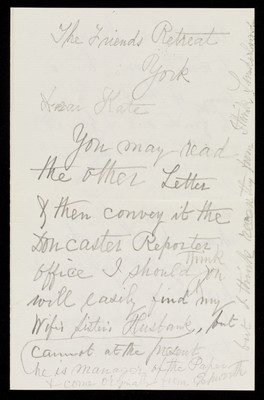 The Friends Retreat
York
Dear Kate
You may read
the other Letter
& then convey it the
Doncaster Reporter
office I should think you
will easily find my
Wife's Sister's Husband, but
cannot at the present
he is manager of the Paper
& come
but I think